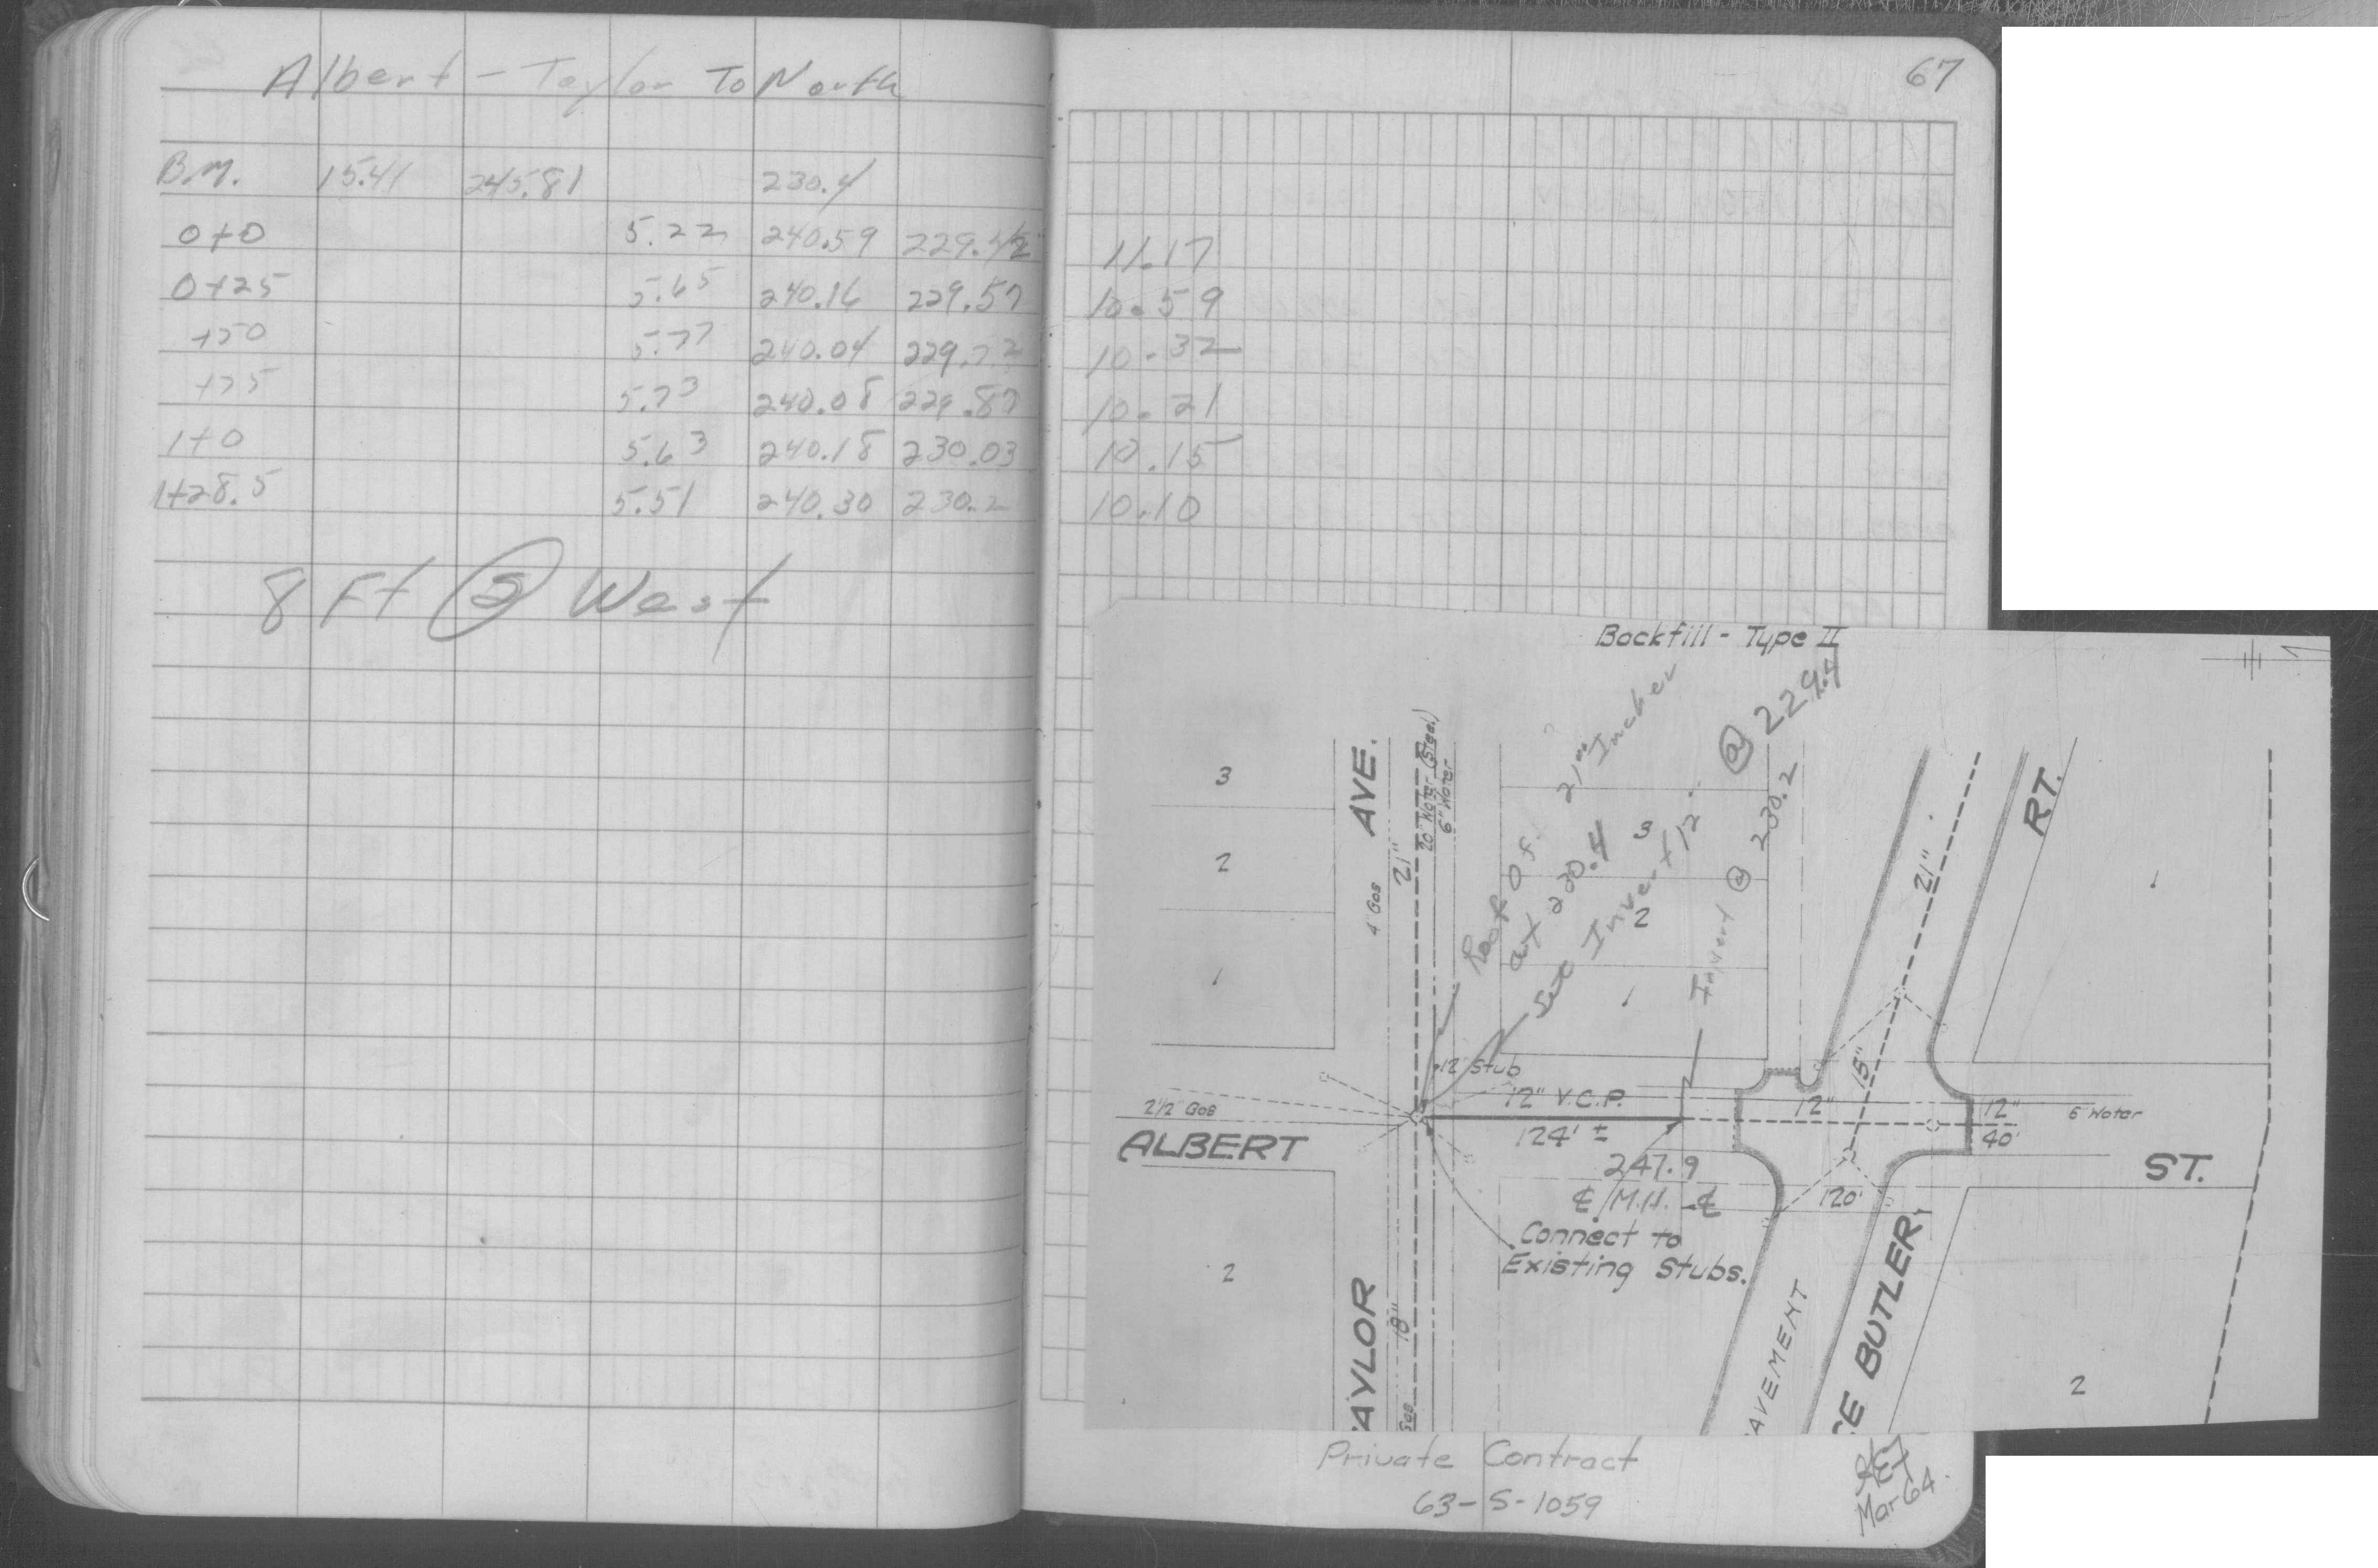 Albert - Taylor To North
B.M. 15.41 245.81 230.4
0+0 5.22 240.59 229.42
0+25 5.65 240.16 229.57
+50 5.77 240.04 229.72
+75 5.73 240.08 229.87
1+0 5.63 240.18 230.03
1+28.5 5.51 240.30 230.2
8 Ft @ West
67
11.17
10.59
10.32
10.21
10.15
10.10
Backfill - Type II
Roof of 21" Incher
at 230.4
Set Invert 12" @ 229.4
Invert @ 230.2
3
2
1
AVE.
4" Gas
21"
20" Water (Steel)
6" Water
3
2
1
21"
RT.
1
12" Stub
12" V.C.P.
124' ±
2 1/2" Gas
ALBERT
15"
12"
12"
40'
6" Water
ST.
247.9
℄ M.H. ℄
120'
Connect to
Existing Stubs.
2
TAYLOR
18"
Gas
PAVEMENT
CE BUTLER
2
Private Contract
63-S-1059
Mar 64